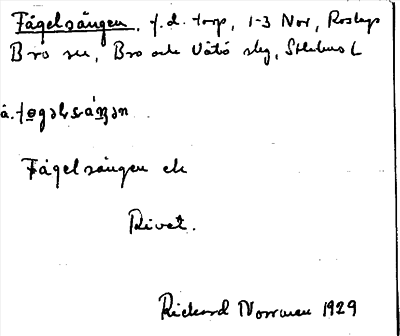 Fågelsången, f.d. torp, 1-3 Nor, Roslags
Bro sn, Bro och Vätö slg, Sthlms L
å. føgəlsáŋən
Fågelsången ek
Rivet.
Rickard Norrman 1929